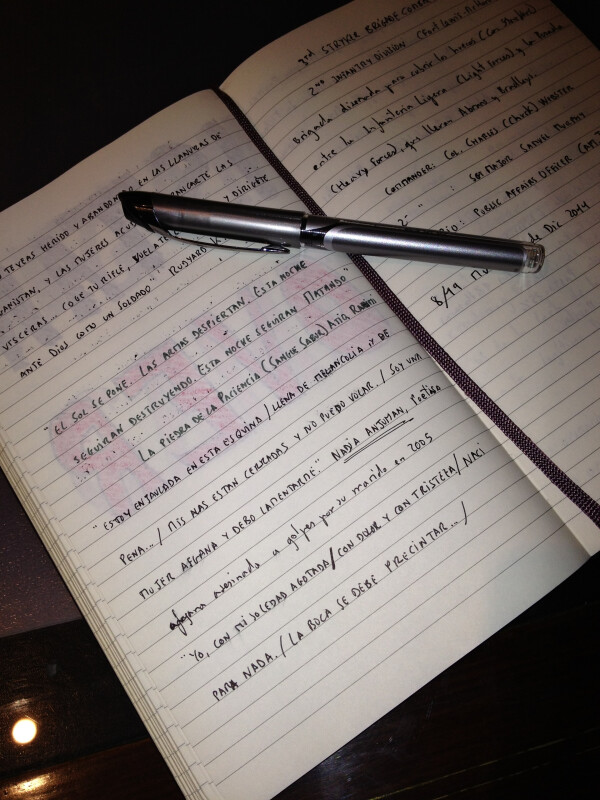 TE VEAS HERIDO Y ABANDONADO EN LAS LLANURAS DE
ANISTÁN, Y LAS MUJERES ACU ARRANCARTE LAS
VÍSCERAS... COGE TU RIFLE, VUELA Y DIRÍGETE
ANTE DIOS COMO UN SOLDADO" RUDYARD
"EL SOL SE PONE. LAS ARMAS DESPIERTAN. ESTA NOCHE
SEGUIRAN DESTRUYENDO. ESTA NOCHE SEGUIRAN MATANDO"
LA PIEDRA DE LA PACIENCIA (SANGUE SABOR) ATIQ RAHIMI
"ESTOY ENJAULADA EN ESTA ESQUINA / LLENA DE MELANCOLIA Y DE
PENA... / MIS ALAS ESTAN CERRADAS Y NO PUEDO VOLAR / SOY UNA
MUJER AFGANA Y DEBO LAMENTARME" NADIA ANJUMAN, POETISA
afgana asesinada a golpes por su marido en 2005
"YO, CON MI SOLEDAD AGOTADA / CON DOLOR Y CON TRISTEZA / NACI
PARA NADA. / LA BOCA SE DEBE PRECINTAR... /
3rd STRYKER BRIGADE
2nd INFANTRY DIVISION (Fort Lewis
Brigada diseñada para cubrir los huecos
entre la Infantería Ligera (Light Forces) y la Pesada
(Heavy Forces), que llevan Abrams y Bradleys.
COMMANDER: COL. CHARLES (Chuck) WEBSTER
2º " : SGM MAJOR SAMUEL MURPHY
PUBLIC AFFAIRS OFFICER
8/19 de Dic 2014